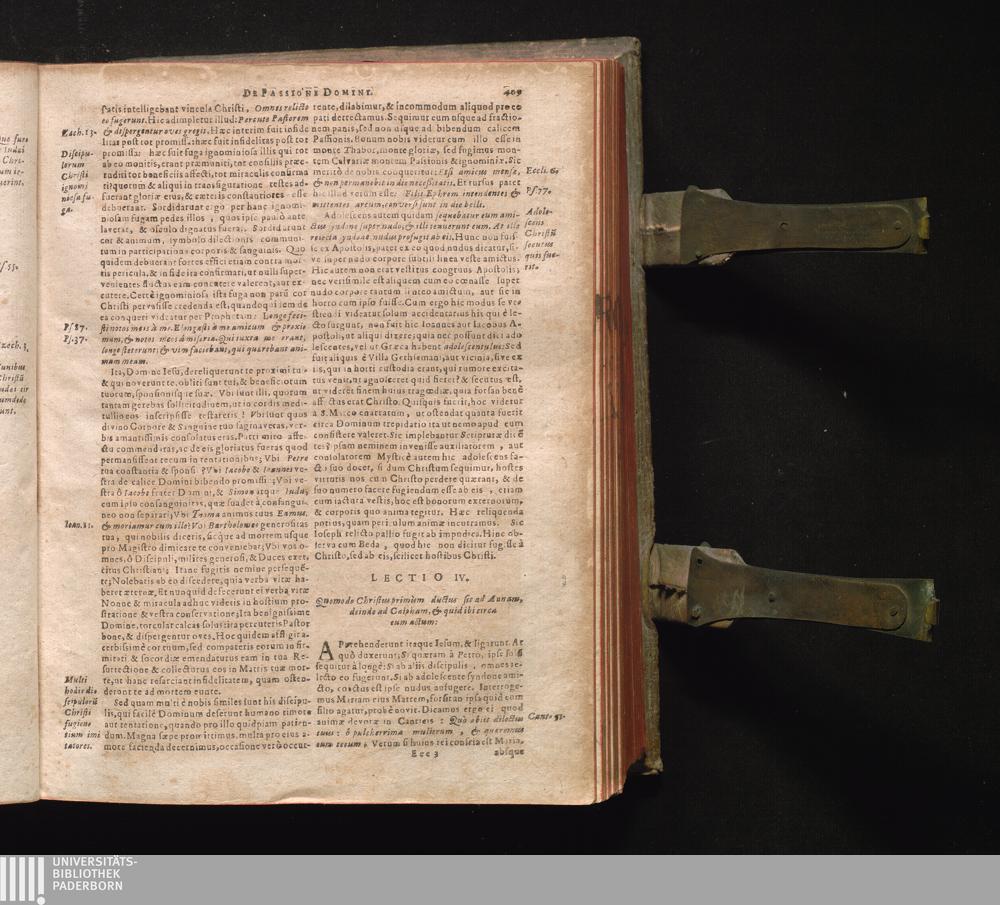 DE PASSIONE DOMINI. 409
satis intelligebant vincula Christi, Omnes relicto
eo fugerunt. Hic adimpletur illud: Percute Pastorem
& dispergentur oves gregis. Hæc interim fuit infide
litas post tot promissa: hæc fuit infidelitas post tot
promissa: hæc fuit fuga ignominiosa illis qui tot
ab eo moniti, erant præmuniti, tot consiliis præ-
ruditi tot beneficiis affecti, tot miraculis confirma
ti & quorum & aliqui in transfiguratione testes ad-
fuerant gloriæ eius, & cæteris constantiores esse
debuerant. Sordidarunt ergo per hanc ignomi-
niosam fugam pedes illos, quos ipse paulò ante
laverat, & osculo dignatus fuerat. Sordidarunt
cor & animum, symbolo dilectionis communi-
tum in participatione corporis & sanguinis. Quo
quidem debuerant fortes effici etiam contra mor-
tis pericula, & in fide ita confirmari, ut nulli super-
venientes fluctus eam concutere valerent, aut ex-
cutere. Certè ignominiosa ista fuga non parū cor
Christi pervasisse credenda est, quandoquidem de
ea conqueri videatur per Prophetam: Longe feci-
sti notos meos à me. Elongasti à me amicum & proxi
mum, & notos meos à miseria. Qui iuxta me erant,
longe steterunt; & vim faciebant, qui quærebant ani-
mam meam.
Ita, Domine Iesu, dereliquerunt te proximi tui
& qui noverunt te, obliti sunt tui, & beneficiorum
tuorum, sponsionisque suæ. Vbi sunt illi, quorum
tantam gerebas sollicitudinem, ut in cordis medi-
tullio eos inscripsisse testareris? Vbi sunt quos
divino Corpore & Sanguine tuo saginaveras, ver-
bis amantissimis consolatus eras, Patri miro affe-
ctu commendaras, ac de eis gloriatus fueras quod
permansissent tecum in tentationibus; Vbi Petre
tua constantia & sponsio? Vbi Iacobe & Ioannes ve-
stra de calice Domini bibendo promissio? Vbi ve-
stra ô Iacobe frater Domini, & Simon atque Iuda,
cum ipso consanguinitas, quæ suadet à consangui-
neo non separari; Vbi Thoma animus tuus Eamus,
& moriamur cum illo? Vbi Bartholomæe generositas
tua, qui nobilis diceris, & que ad mortem usque
pro Magistro dimicare te conveniebat; Vbi vos o-
mnes, ô Discipuli, milites generosi, & Duces exer-
citus Christiani; Itane fugitis nemine persequē-
te; Nolebatis ab eo discedere, quia verba vitæ ha-
beret æternæ, Et nunquid defecerunt ei verba vitæ
Nonne & miracula adhuc videtis in hostium pro-
stratione & vestra conservatione; Ita benignissime
Domine, torcular calcas solus ita percuteris Pastor
bone, & dispergentur oves. Hoc quidem affligit a-
cerbissimè cor tuum, sed compateris eorum infir-
mitati & socordiæ emendaturus eam in tua Re-
surrectione & collecturus eos in Matris tuæ mor-
te, ut hanc resarciant infidelitatem, quam osten-
derunt te ad mortem eunte.
Sed quam multi è nobis similes sunt his discipu-
lis, qui facilè Dominum deserunt humano timore
aut tentatione, quando pro illo quidpiam patien-
dum. Magna sæpe promittimus, multa pro eius a-
more facienda decernimus, occasione verò occur-
Zach. 13.
Discipu-
lorum
Christi
ignomi
niosa fu-
ga.
Ps 87.
Ps. 37.
Ioan. 11.
Multi
hodie di-
scipulorū
Christi
fugien-
tium imi
tatores.
rente, dilabimur, & incommodum aliquod pro eo
pati detrectamus. Sequimur eum usque ad fractio-
nem panis, sed non usque ad bibendum calicem
Passionis. Bonum nobis videtur cum illo esse in
monte Thabor, monte gloriæ, sed fugimus mon-
tem Calvariæ montem Passionis & ignominiæ. Sic
meritò de nobis conqueritur: Est amicus mensæ,
& non permanebit in die necessitatis. Et rursus patet
hic illud verum esse: Filii Ephrem intendentes &
mittentes arcum, conversi sunt in die belli.
Adolescens autem quidam sequebatur eum ami-
ctus syndone super nudo, & illi tenuerunt eum. At ille
reiecta syndone, nudus profugit ab eis. Hunc non fuis-
se ex Apostolis, patet ex eo quod nudus dicatur, si-
ve super nudo corpore subtili linea veste amictus.
Hic autem non erat vestitus congruus Apostolis;
nec verisimile est aliquem cum eo cœnasse super
nudo corpore tantum linteo amictum, aut sic in
horto cum ipso fuisse. Cum ergo hic modus se ve-
stiendi videatur solum accidentarius his qui è le-
cto surgunt, non fuit hic Ioannes aut Iacobus A-
postoli, ut aliqui dixere; quia nec possunt dici ado
lescentes, vel ut Græca habent adolescentulus: Sed
fuit aliquis è Villa Gethsemani, aut vicinia, sive ex
iis, qui in horti custodia erant, qui rumore excita-
tus venit, ut agnosceret quid fieret? & secutus est,
ut videret finem huius tragœdiæ, quia forsan bene
affectus erat Christo. Quisquis fuerit, hoc videtur
à S. Marco enarratum, ut ostendat quanta fuerit
circa Dominum trepidatio ita ut nemo apud eum
consistere valeret. Sic implebantur Scripturæ dicē
tes? ipsum neminem invenisse auxiliatorem, aut
consolatorem Mysticè autem hic adolescens fa-
cto suo docet, si dum Christum sequimur, hostes
virtutis nos cum Christo perdere quærant, & de
suo numero facere fugiendum esse ab eis, etiam
cum iactura vestis, hoc est bonorum externorum,
& corporis quo anima tegitur. Hæc relinquenda
potius, quam periculum animæ incurramus. Sic
Ioseph relicto pallio fugit ab impudica. Hinc ob-
serva cum Beda, quod hic non dicitur fugisse à
Christo, sed ab eis, scilicet hostibus Christi.
LECTIO IV.
Quomodo Christus primùm ductus sit ad Annam,
deinde ad Caipham, & quid ibi circa
eum actum:
APprehenderunt itaque Iesum, & ligarunt. At
quò duxerunt; Si quæram à Petro, ipse solū
sequitur à longè: Si ab aliis discipulis, omnes re-
licto eo fugerunt. Si ab adolescente syndone ami-
cto, coactus est ipse nudus aufugere. Interroge-
mus Mariam eius Matrem, forsitan ipsa quid eum
filio agatur, probè novit. Dicamus ergo ei quod
animæ devotæ in Canticis: Quò abiit dilectus
tuus: ô pulcherrima mulierum, & quæremus
eum tecum; Verum si huius rei conscia est Maria,
Eee 3 absque
Eccli. 6.
Ps 77.
Adole-
scens
Christū
secutus
quis fue-
rit.
Cant. 51.
UNIVERSITÄTS-
BIBLIOTHEK
PADERBORN